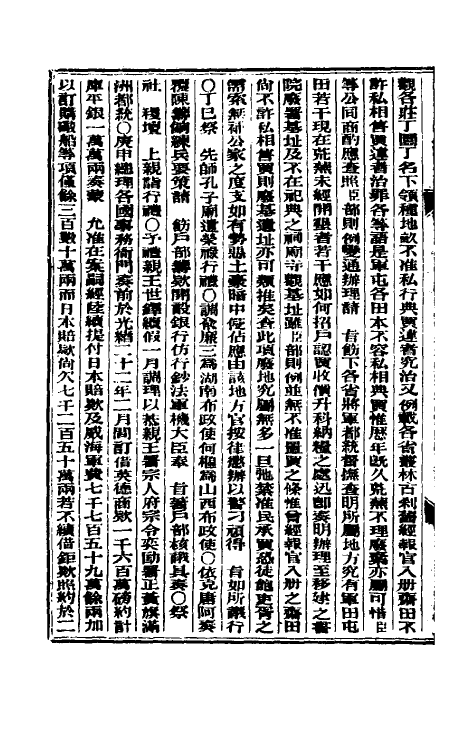 觀各莊丁園丁名下領種地畝不准私行典賣違者究治又例載各省叢林古刹舊經報官入册齋田不
許私相售賣違者治罪各等語是軍屯各田本不容私相典賣惟歷年既久荒蕪不理廢棄亦屬可惜臣
等公同商酌應查照臣部則例變通辦理請　旨飭下各省將軍都統督撫查明所屬地方究有軍田屯
田若干現在荒蕪未經開墾者若干應如何招戶認買收價升科納糧之處迅卽奏明辦理至移建之書
院廢署基址及不在祀典之祠廟寺觀基址雖臣部則例並無不准置買之條惟曾經報官入册之齋田
尚不許私相售賣則廢基遺址亦可類推矣查此項廢地究屬無多一旦弛禁准民承買恐徒飽吏胥之
需索無補公家之度支如有勢惡土豪暗中侵佔應由該地方官按律懲辦以警刁頑得　旨如所議行
〇丁巳祭　先師孔子廟遣榮祿行禮〇調俞廉三爲湖南布政使何樞爲山西布政使〇依克唐阿奏
覆陳籌餉練兵要策請　飭戶部籌款開設銀行仿行鈔法軍機大臣奉　旨著戶部核議具奏〇祭
社　稷壇　上親詣行禮〇予禮親王世鐸續假一月調理以恭親王署宗人府宗令奕劻署正黃旗滿
洲都統〇庚申總理各國事務衙門奏前於光緖二十二年二月間訂借英德商款一千六百萬磅約計
庫平銀一萬萬兩奏蒙　允准在案嗣經陸續提付日本賠款及威海軍費七千七百五十九萬餘兩加
以訂購礮船等項僅餘三百數十萬兩而日本賠款尚欠七千二百五十萬兩若不續借鉅款照約於二